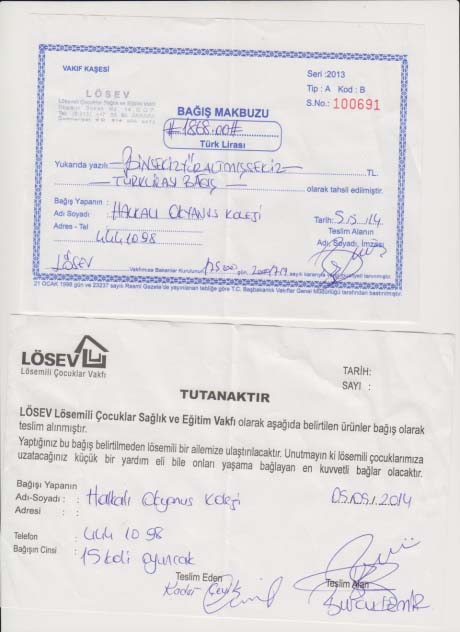 VAKIF KAŞESİ
LÖSEV
Lösemili Çocuklar Sağlık ve Eğitim Vakfı
Seri :2013
Tip : A Kod : B
S.No.: 100691
BAĞIŞ MAKBUZU
#1868.00#
Türk Lirası
Yukarıda yazılı BİNSEKİZYÜZALTMIŞSEKİZ TL.
TÜRKLİRASI BAĞIŞ olarak tahsil edilmiştir.
Bağış Yapanın :
Adı Soyadı : HALKALI OKYANUS KOLEJİ
Adres - Tel :
444 10 98
Tarih: 5.5.14
Teslim Alanın
Adı, Soyadı, İmzası
LÖSEV
Vakfımıza Bakanlar Kurulunun gün, sayılı kararıyla tanınmıştır.
21 OCAK 1998 gün ve 23237 sayılı Resmi Gazete'de yayınlanan tebliğe göre T.C. Başbakanlık Vakıflar Genel Müdürlüğü tarafından bastırılmıştır.
LÖSEV
Lösemili Çocuklar Vakfı
TARİH:
SAYI :
TUTANAKTIR
LÖSEV Lösemili Çocuklar Sağlık ve Eğitim Vakfı olarak aşağıda belirtilen ürünler bağış olarak
teslim alınmıştır.
Yaptığınız bu bağış belirtilmeden lösemili bir ailemize ulaştırılacaktır. Unutmayın ki lösemili çocuklarımıza
uzatacağınız küçük bir yardım eli bile onları yaşama bağlayan en kuvvetli bağlar olacaktır.
Bağışı Yapanın
Adı-Soyadı : Halkalı Okyanus Koleji
05/05/2014
Adresi :
Telefon : 444 10 98
Bağışın Cinsi : 15 koli oyuncak
Teslim Eden
Kadir Çevik
Teslim Alan
Burcu DEMİR